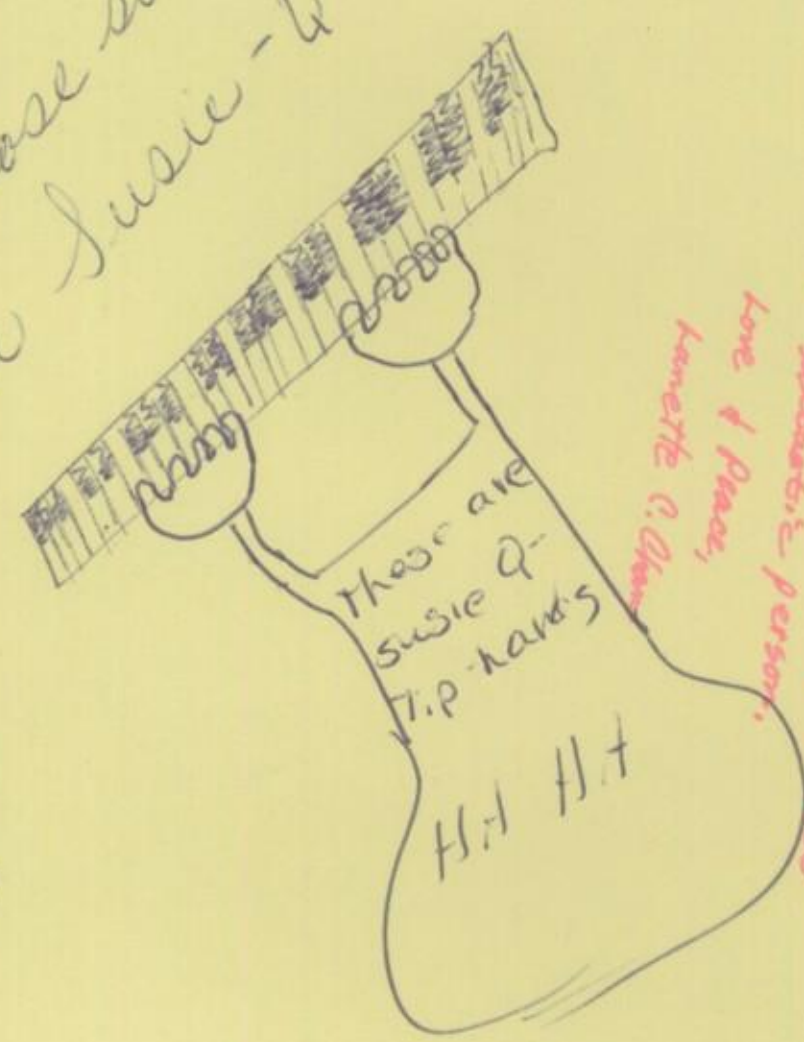 Susie-Q
These are
susie Q-
Tip-hands
Hit Hit
person.
Love & Peace,
Lanette C.